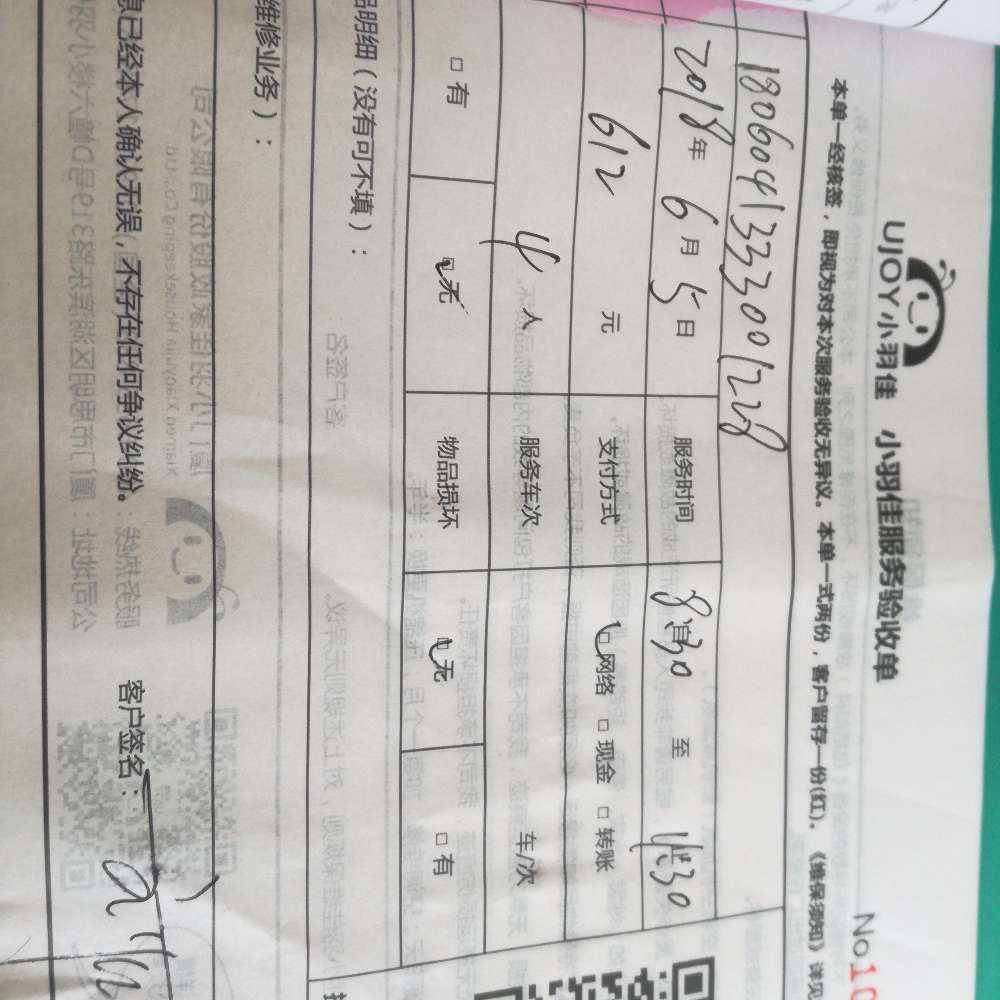 UJOY小羽佳 小羽佳服务验收单
No.10
本单一经核签，即视为对本次服务验收无异议。本单一式两份，客户留存一份(红)。《维保须知》详见
1806041333001228
2018年6月5日 服务时间 8:30 至
612 元 支付方式 网络 □ 现金 □ 转账
4 人 服务车次 车/次
□ 有 无 物品损坏 无 □ 有
品明细（没有可不填）：
维修业务）：
息已经本人确认无误，不存在任何争议纠纷。 客户签名：